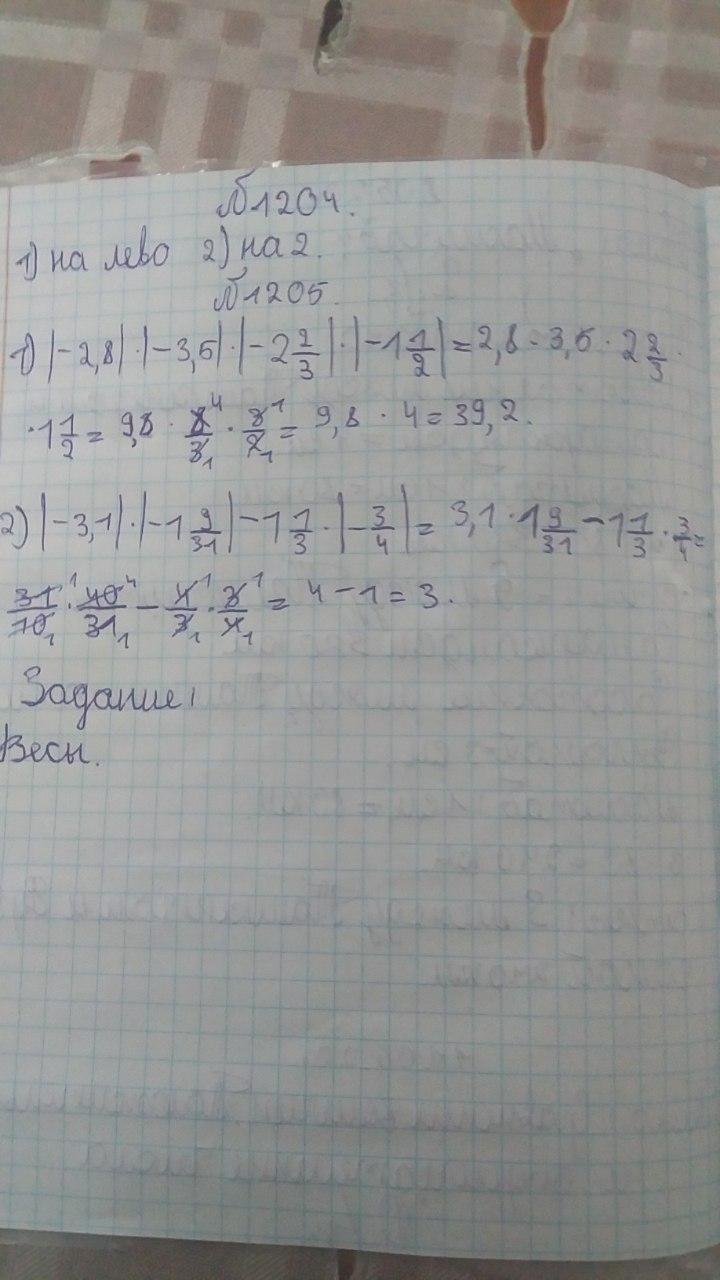 №1204.
1) на лево 2) на 2.
№1205.
1) |-2,8|·|-3,5|·|-2 2/3|·|-1 1/2|=2,8·3,5·2 2/3·
·1 1/2= 9,8 · 8⁴/3₁ · 3¹/2₁= 9,8 · 4=39,2.
2) |-3,1|·|-1 9/31|-1 1/3·|-3/4|= 3,1·1 9/31-1 1/3·3/4=
31¹/10₁·40⁴/31₁-4¹/3₁·3¹/4₁= 4-1=3.
Задание,
Весы.